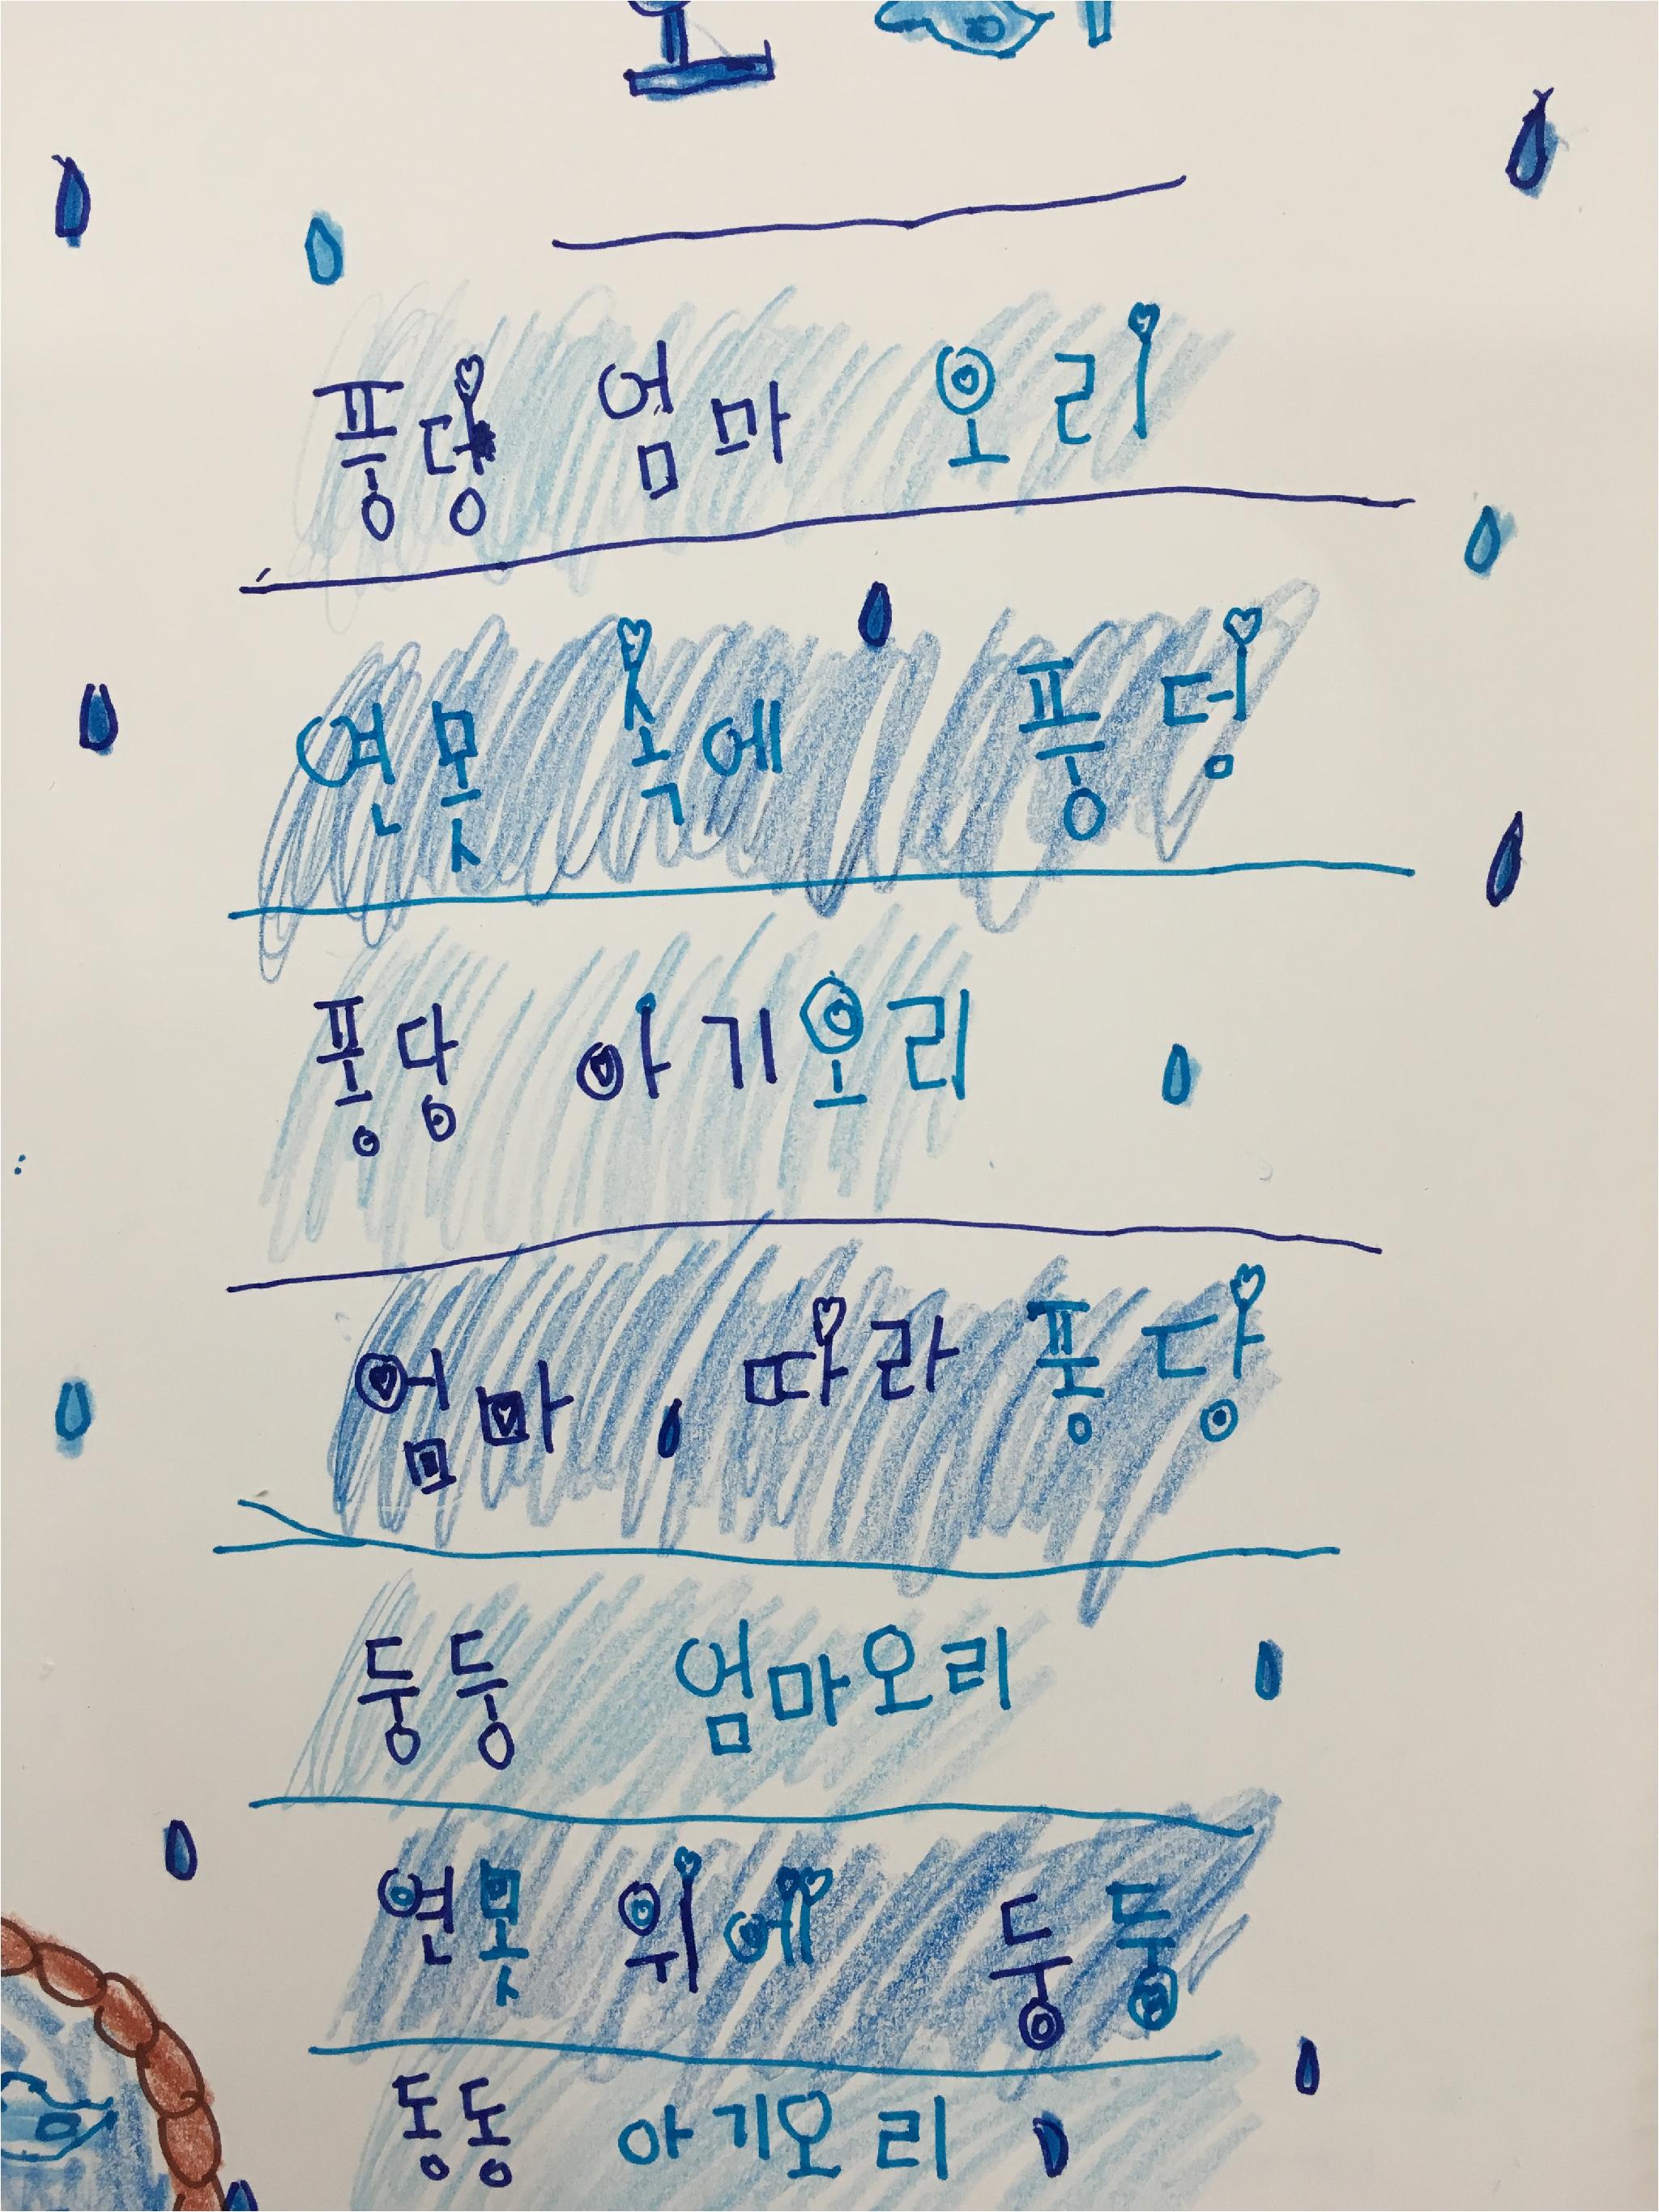 풍덩 엄마 오리
연못 속에 풍덩
퐁당 아기오리
엄마 따라 퐁당
둥둥 엄마오리
연못 위에 둥둥
동동 아기오리